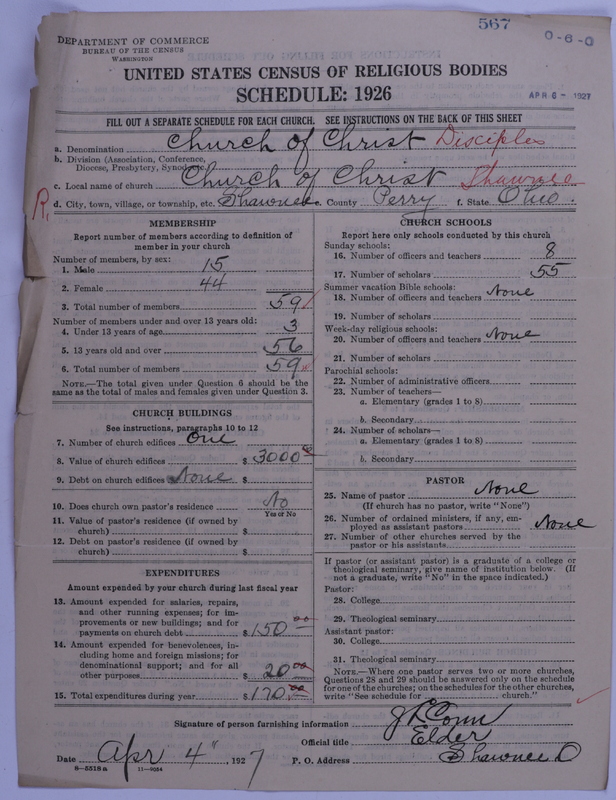 567
0-6-0
DEPARTMENT OF COMMERCE
BUREAU OF THE CENSUS
WASHINGTON
APR 6 - 1927
UNITED STATES CENSUS OF RELIGIOUS BODIES
SCHEDULE: 1926
FILL OUT A SEPARATE SCHEDULE FOR EACH CHURCH. SEE INSTRUCTIONS ON THE BACK OF THIS SHEET
a. Denomination Church of Christ Disciples
b. Division (Association, Conference, Diocese, Presbytery, Synod, etc.)
c. Local name of church Church of Christ Shawnee
R. d. City, town, village, or township, etc. Shawnee e. County Perry f. State Ohio
MEMBERSHIP
Report number of members according to definition of
member in your church
Number of members, by sex:
1. Male 15
2. Female 44
3. Total number of members 59
Number of members under and over 13 years old:
4. Under 13 years of age 3
5. 13 years old and over 56
6. Total number of members 59
NOTE.—The total given under Question 6 should be the
same as the total of males and females given under Question 3.
CHURCH BUILDINGS
See instructions, paragraphs 10 to 12
7. Number of church edifices One
8. Value of church edifices $ 3000
9. Debt on church edifices None $
10. Does church own pastor's residence No
Yes or No
11. Value of pastor's residence (if owned by
church) $
12. Debt on pastor's residence (if owned by
church) $
EXPENDITURES
Amount expended by your church during last fiscal year
13. Amount expended for salaries, repairs,
and other running expenses; for im-
provements or new buildings; and for
payments on church debt $ 150 00
14. Amount expended for benevolences, in-
cluding home and foreign missions; for
denominational support; and for all
other purposes $ 20 00
15. Total expenditures during year $ 170 00
CHURCH SCHOOLS
Report here only schools conducted by this church
Sunday schools:
16. Number of officers and teachers 8
17. Number of scholars 55
Summer vacation Bible schools:
18. Number of officers and teachers None
19. Number of scholars
Week-day religious schools:
20. Number of officers and teachers None
21. Number of scholars
Parochial schools:
22. Number of administrative officers
23. Number of teachers—
a. Elementary (grades 1 to 8)
b. Secondary
24. Number of scholars—
a. Elementary (grades 1 to 8)
b. Secondary
PASTOR
25. Name of pastor None
(If church has no pastor, write "None")
26. Number of ordained ministers, if any, em-
ployed as assistant pastors None
27. Number of other churches served by the
pastor or his assistants
If pastor (or assistant pastor) is a graduate of a college or
theological seminary, give name of institution below. (If
not a graduate, write "No" in the space indicated.)
Pastor:
28. College
29. Theological seminary
Assistant pastor:
30. College
31. Theological seminary
NOTE.—Where one pastor serves two or more churches,
Questions 28 and 29 should be answered only on the schedule
for one of the churches; on the schedules for the other churches,
write "See schedule for church."
Signature of person furnishing information J L Conn
Official title Elder
Date Apr 4", 1927 P. O. Address Shawnee O
8-5518 a 11-9054